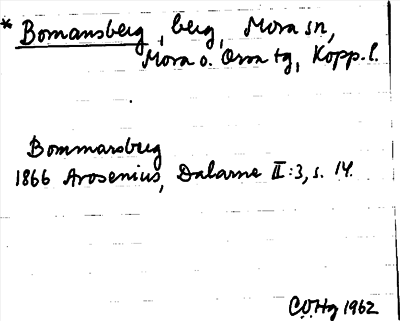 * Bomansberg, berg, Mora sn,
Mora o. Orsa tg, Kopp.l.
Bommarsberg
1866 Arosenius, Dalarne II:3, s. 14.
COHg 1962